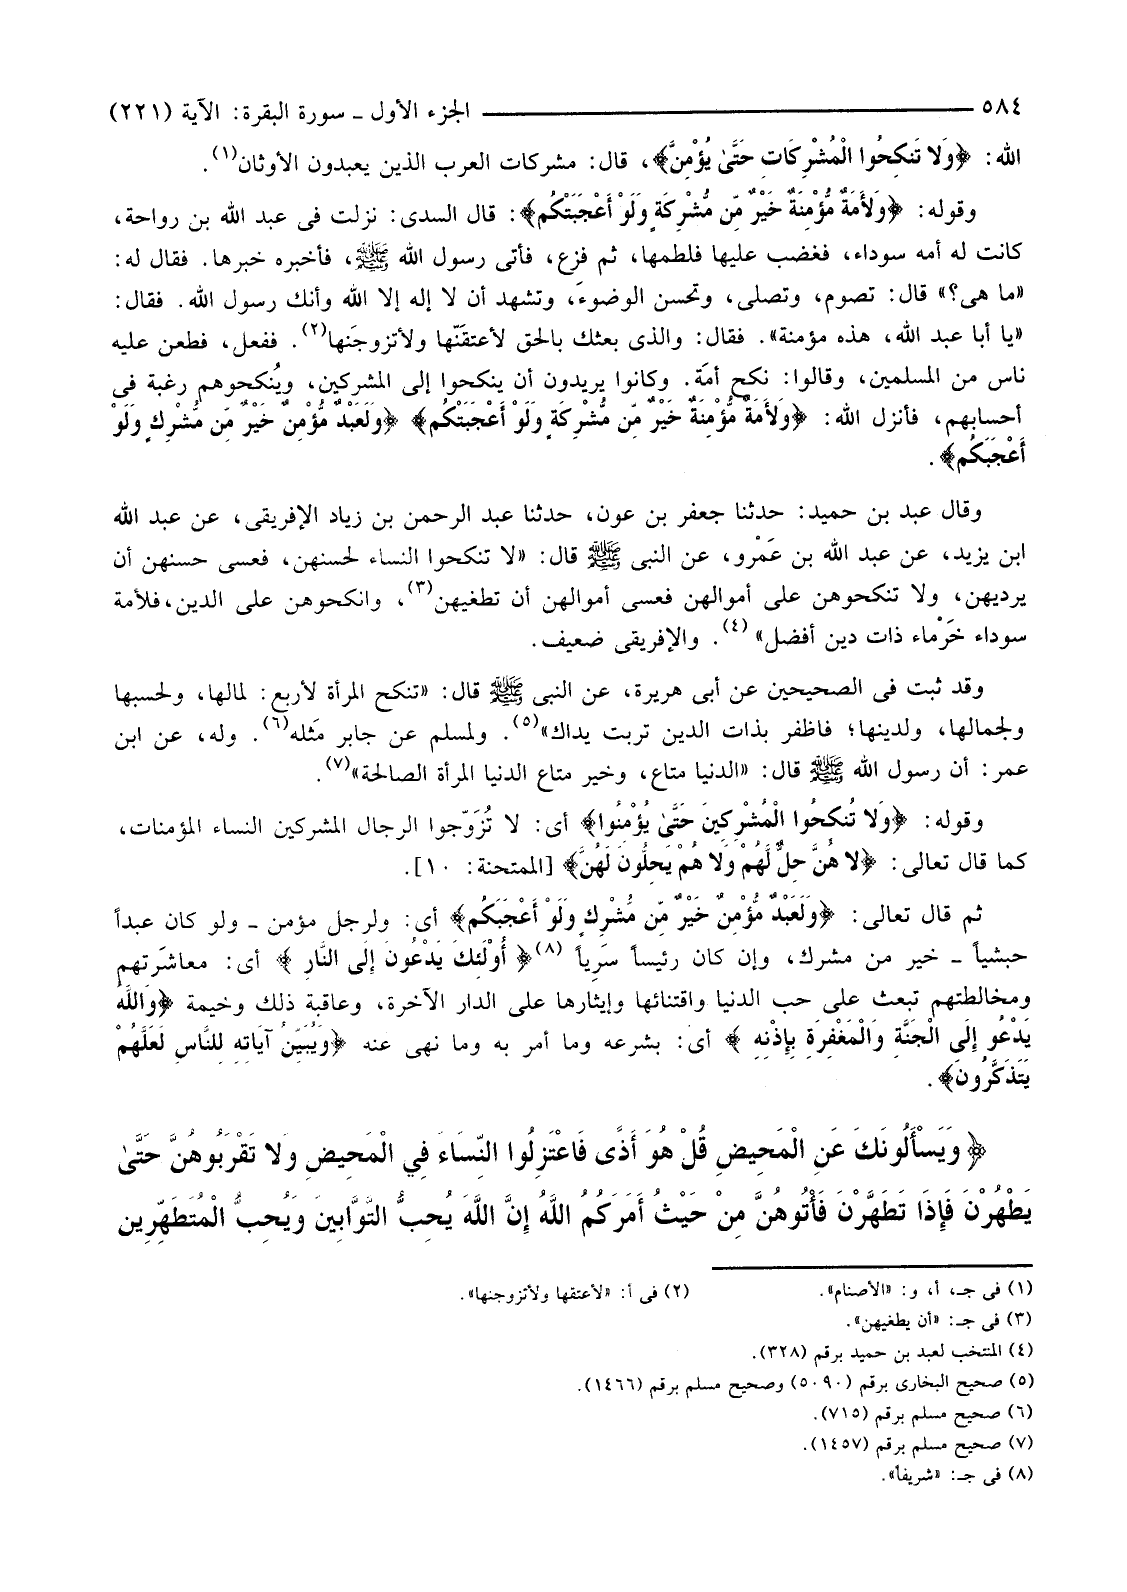 ٥٨٤ ــــــ الجزء الأول ـ سورة البقرة: الآية (٢٢١)
الله: ﴿وَلا تَنكِحُوا الْمُشْرِكَاتِ حَتَّىٰ يُؤْمِنَّ﴾، قال: مشركات العرب الذين يعبدون الأوثان(١).
وقوله: ﴿وَلأَمَةٌ مُّؤْمِنَةٌ خَيْرٌ مِّن مُّشْرِكَةٍ وَلَوْ أَعْجَبَتْكُمْ﴾: قال السدى: نزلت فى عبد الله بن رواحة،
كانت له أمه سوداء، فغضب عليها فلطمها، ثم فزع، فأتى رسول الله ﷺ، فأخبره خبرها. فقال له:
«ما هى؟» قال: تصوم، وتصلى، وتحسن الوضوءَ، وتشهد أن لا إله إلا الله وأنك رسول الله. فقال:
«يا أبا عبد الله، هذه مؤمنة». فقال: والذى بعثك بالحق لأعتقَنّها ولأتزوجَنها(٢). ففعل، فطعن عليه
ناس من المسلمين، وقالوا: نكح أمَة. وكانوا يريدون أن ينكحوا إلى المشركين، ويُنكحوهم رغبة فى
أحسابهم، فأنزل الله: ﴿وَلأَمَةٌ مُّؤْمِنَةٌ خَيْرٌ مِّن مُّشْرِكَةٍ وَلَوْ أَعْجَبَتْكُمْ﴾ ﴿وَلَعَبْدٌ مُّؤْمِنٌ خَيْرٌ مِّن مُّشْرِكٍ وَلَوْ
أَعْجَبَكُمْ﴾.
وقال عبد بن حميد: حدثنا جعفر بن عون، حدثنا عبد الرحمن بن زياد الإفريقى، عن عبد الله
ابن يزيد، عن عبد الله بن عَمْرو، عن النبى ﷺ قال: «لا تنكحوا النساء لحسنهن، فعسى حسنهن أن
يرديهن، ولا تنكحوهن على أموالهن فعسى أموالهن أن تطغيهن(٣)، وانكحوهن على الدين،فلأمة
سوداء خَرْماء ذات دين أفضل» (٤). والإفريقى ضعيف.
وقد ثبت فى الصحيحين عن أبى هريرة، عن النبى ﷺ قال: «تنكح المرأة لأربع: لمالها، ولحسبها
ولجمالها، ولدينها؛ فاظفر بذات الدين تربت يداك»(٥). ولمسلم عن جابر مَثله(٦). وله، عن ابن
عمر: أن رسول الله ﷺ قال: «الدنيا متاع، وخير متاع الدنيا المرأة الصالحة»(٧).
وقوله: ﴿وَلا تُنكِحُوا الْمُشْرِكِينَ حَتَّىٰ يُؤْمِنُوا﴾ أى: لا تُزَوّجوا الرجال المشركين النساء المؤمنات،
كما قال تعالى: ﴿لا هُنَّ حِلٌّ لَّهُمْ وَلا هُمْ يَحِلُّونَ لَهُنَّ﴾ [الممتحنة: ١٠].
ثم قال تعالى: ﴿وَلَعَبْدٌ مُّؤْمِنٌ خَيْرٌ مِّن مُّشْرِكٍ وَلَوْ أَعْجَبَكُمْ﴾ أى: ولرجل مؤمن ـ ولو كان عبداً
حبشياً ـ خير من مشرك، وإن كان رئيساً سَرِياً (٨)﴿ أُوْلَئِكَ يَدْعُونَ إِلَى النَّارِ ﴾ أى: معاشَرتهم
ومخالطتهم تبعث على حب الدنيا واقتنائها وإيثارها على الدار الآخرة، وعاقبة ذلك وخيمة ﴿وَاللَّهُ
يَدْعُو إِلَى الْجَنَّةِ وَالْمَغْفِرَةِ بِإِذْنِهِ ﴾ أى: بشرعه وما أمر به وما نهى عنه ﴿وَيُبَيِّنُ آيَاتِهِ لِلنَّاسِ لَعَلَّهُمْ
يَتَذَكَّرُونَ﴾.
﴿ وَيَسْأَلُونَكَ عَنِ الْمَحِيضِ قُلْ هُوَ أَذًى فَاعْتَزِلُوا النِّسَاءَ فِي الْمَحِيضِ وَلا تَقْرَبُوهُنَّ حَتَّىٰ
يَطْهُرْنَ فَإِذَا تَطَهَّرْنَ فَأْتُوهُنَّ مِنْ حَيْثُ أَمَرَكُمُ اللَّهُ إِنَّ اللَّهَ يُحِبُّ التَّوَّابِينَ وَيُحِبُّ الْمُتَطَهِّرِين
(١) فى جـ، أ، و: «الأصنام». (٢) فى أ: «لأعتقها ولأتزوجنها».
(٣) فى جـ: «أن يطغيهن».
(٤) المنتخب لعبد بن حميد برقم (٣٢٨).
(٥) صحيح البخارى برقم (٥٠٩٠) وصحيح مسلم برقم (١٤٦٦).
(٦) صحيح مسلم برقم (٧١٥).
(٧) صحيح مسلم برقم (١٤٥٧).
(٨) فى جـ: «شريفاً».